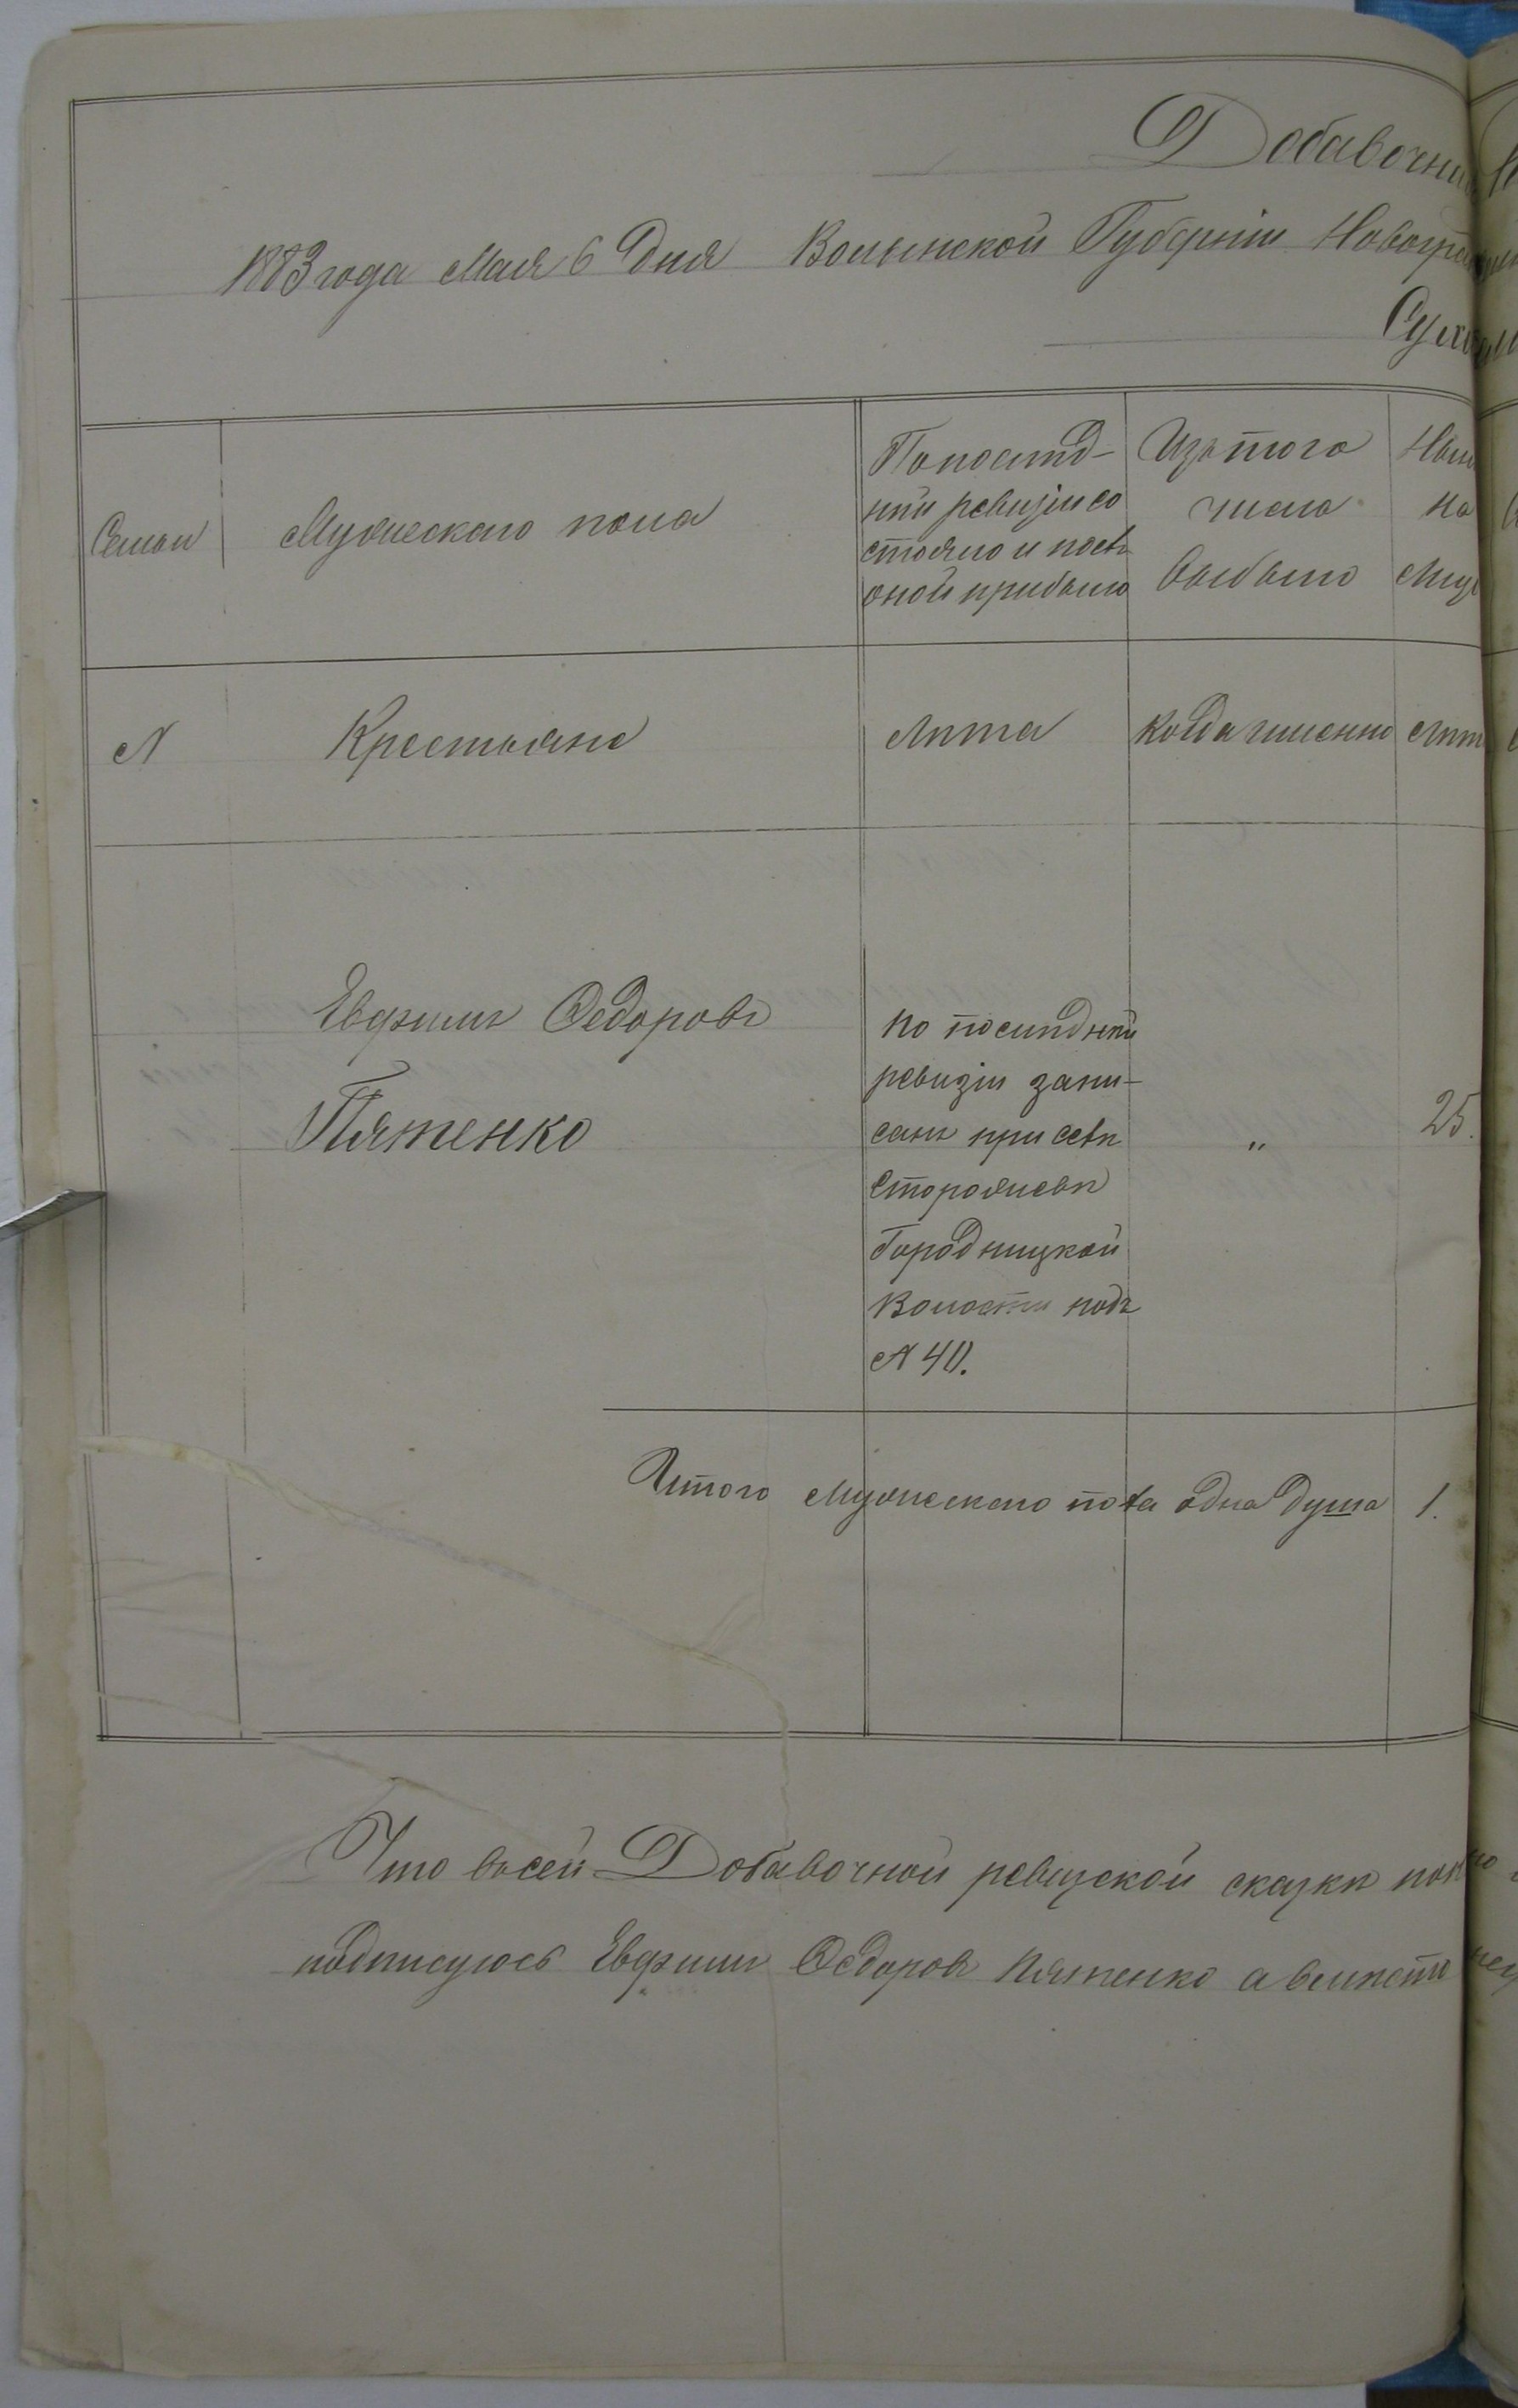 Добавочн
1883 года Мая 6 дня Волынской Губерніи Новогра
Сух
Семьи
Мужескаго пола
По послѣд-
ній ревизіи со
стояло и послѣ
оной прибыло
Изъ того
числа
выбыло
Нын
на
Муж
№
Крестьяне
Лѣта
Когда именно
Лѣт
Евфимъ Ѳедоровъ
Пятенко
по послѣдній
ревизіи запи-
санъ при селѣ
Сторожевѣ
Городницкой
Волости подъ
№ 40.
"
25.
Итого Мужескаго пола одна душа 1.
Что въ сей Добавочной ревизской сказки пок
подписуюсь Евфимъ Ѳедоровъ Пятенко а вмѣсто